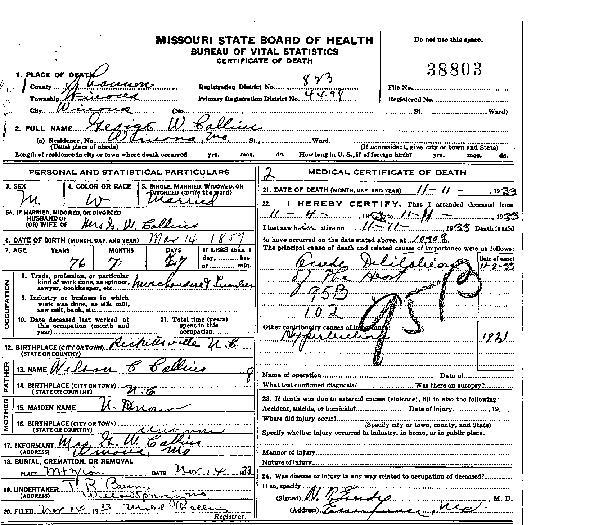 MISSOURI STATE BOARD OF HEALTH
BUREAU OF VITAL STATISTICS
CERTIFICATE OF DEATH
Do not use this space.
38803
1. PLACE OF DEATH
County Shannon
Registration District No. 823
File No.
Township Winona
Primary Registration District No. 4498
Registered No.
City Winona No. St. Ward)
2. FULL NAME George W Collins
(a) Residence, No. Winona Mo St. Ward.
(Usual place of abode) (If nonresident, give city or town and State)
Length of residence in city or town where death occurred yrs. mos. ds. How long in U. S., if of foreign birth? yrs. mos. ds.
PERSONAL AND STATISTICAL PARTICULARS
3. SEX 4. COLOR OR RACE 5. SINGLE, MARRIED, WIDOWED, OR DIVORCED (write the word)
M W Married
5A. IF MARRIED, WIDOWED, OR DIVORCED
HUSBAND OF
(OR) WIFE OF Mrs G. W. Collins
6. DATE OF BIRTH (MONTH, DAY, AND YEAR) Mar 14 1857
7. AGE YEARS MONTHS DAYS If LESS than 1 day, hrs. or min.
76 7 27
OCCUPATION
8. Trade, profession, or particular kind of work done, as spinner, sawyer, bookkeeper, etc. Merchandise & Lumber
9. Industry or business in which work was done, as silk mill, saw mill, bank, etc.
10. Date deceased last worked at this occupation (month and year)
11. Total time (years) spent in this occupation
12. BIRTHPLACE (CITY OR TOWN) N. C.
(STATE OR COUNTRY)
FATHER
13. NAME Wilson C Collins
14. BIRTHPLACE (CITY OR TOWN) N. C.
(STATE OR COUNTRY)
MOTHER
15. MAIDEN NAME
16. BIRTHPLACE (CITY OR TOWN)
(STATE OR COUNTRY)
17. INFORMANT Mrs. G. W. Collins
(ADDRESS) Winona Mo
18. BURIAL, CREMATION, OR REMOVAL
PLACE Mt Zion DATE Nov. 14 1933
19. UNDERTAKER
(ADDRESS)
20. FILED Nov 14 1933
Registrar.
2 MEDICAL CERTIFICATE OF DEATH
21. DATE OF DEATH (MONTH, DAY, AND YEAR) 11-11- 1933
22. I HEREBY CERTIFY, That I attended deceased from
11-4- 1933 11-11- 1933
I last saw h alive on 11-11- 1933 Death is said
to have occurred on the date stated above, at
The principal cause of death and related causes of importance were as follows:
Date of onset
Acute Dilatation
of The Heart
95B
102
95B
Other contributory causes of importance:
Hypertension 1921
Name of operation Date of
What test confirmed diagnosis? Was there an autopsy?
23. If death was due to external causes (violence), fill in also the following:
Accident, suicide, or homicide? Date of injury 19
Where did injury occur?
(Specify city or town, county, and State)
Specify whether injury occurred in industry, in home, or in public place.
Manner of injury
Nature of injury
24. Was disease or injury in any way related to occupation of deceased?
If so, specify
(Signed) M. D.
(Address) Mo